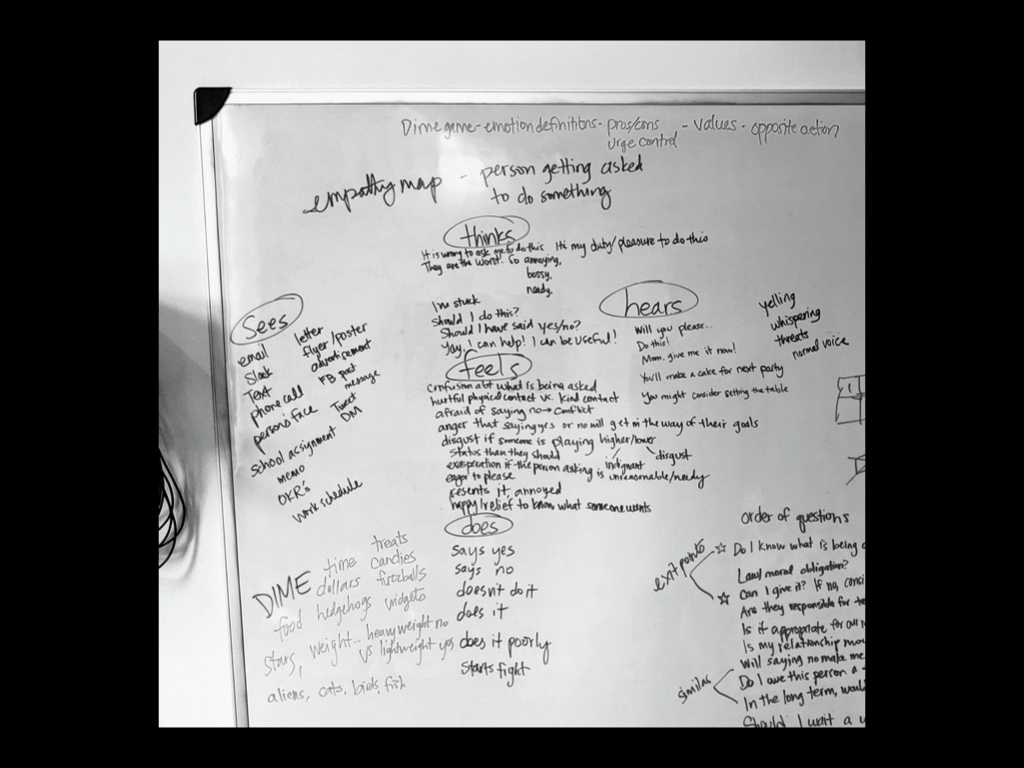 Dime game - emotion definitions - pros/cons - values - opposite action
urge control
empathy map - person getting asked
to do something
thinks
It is wrong to ask me to do this It's my duty/pleasure to do this
They are the worst. So annoying,
bossy,
needy.
I'm stuck
Should I do this?
Should I have said yes/no?
Yay, I can help! I can be useful!
hears
Will you please...
Do this!
Mom, give me it now!
You'll make a cake for next party
You might consider setting the table
yelling
whispering
threats
normal voice
Sees
email
Slack
Text
phone call
person's face
school assignment
memo
OKR's
work schedule
letter
flyer/poster
advertisement
FB post
message
Tweet
DM
feels
confusion abt what is being asked
hurtful physical contact vs. kind contact
afraid of saying no → conflict
anger that saying yes or no will get in the way of their goals
disgust if someone is playing higher/lower
status than they should
indignant disgust
exasperation if the person asking is unreasonable/needy
eager to please
resents it, annoyed
happy/relief to know what someone wants
does
says yes
says no
doesn't do it
does it
does it poorly
starts fight
DIME
time
treats
dollars
candies
food
hedgehogs
fireballs
widgets
stars, weight... heavyweight no
vs lightweight yes
aliens, cats, birds, fish
order of questions
exit points
☆ Do I know what is being
Law/moral obligation?
☆ Can I give it? If no,
Are they responsible for
Is it appropriate for our
Is my relationship
Will saying no make me
similar
Do I owe this person a
In the long term,
Should I wait a